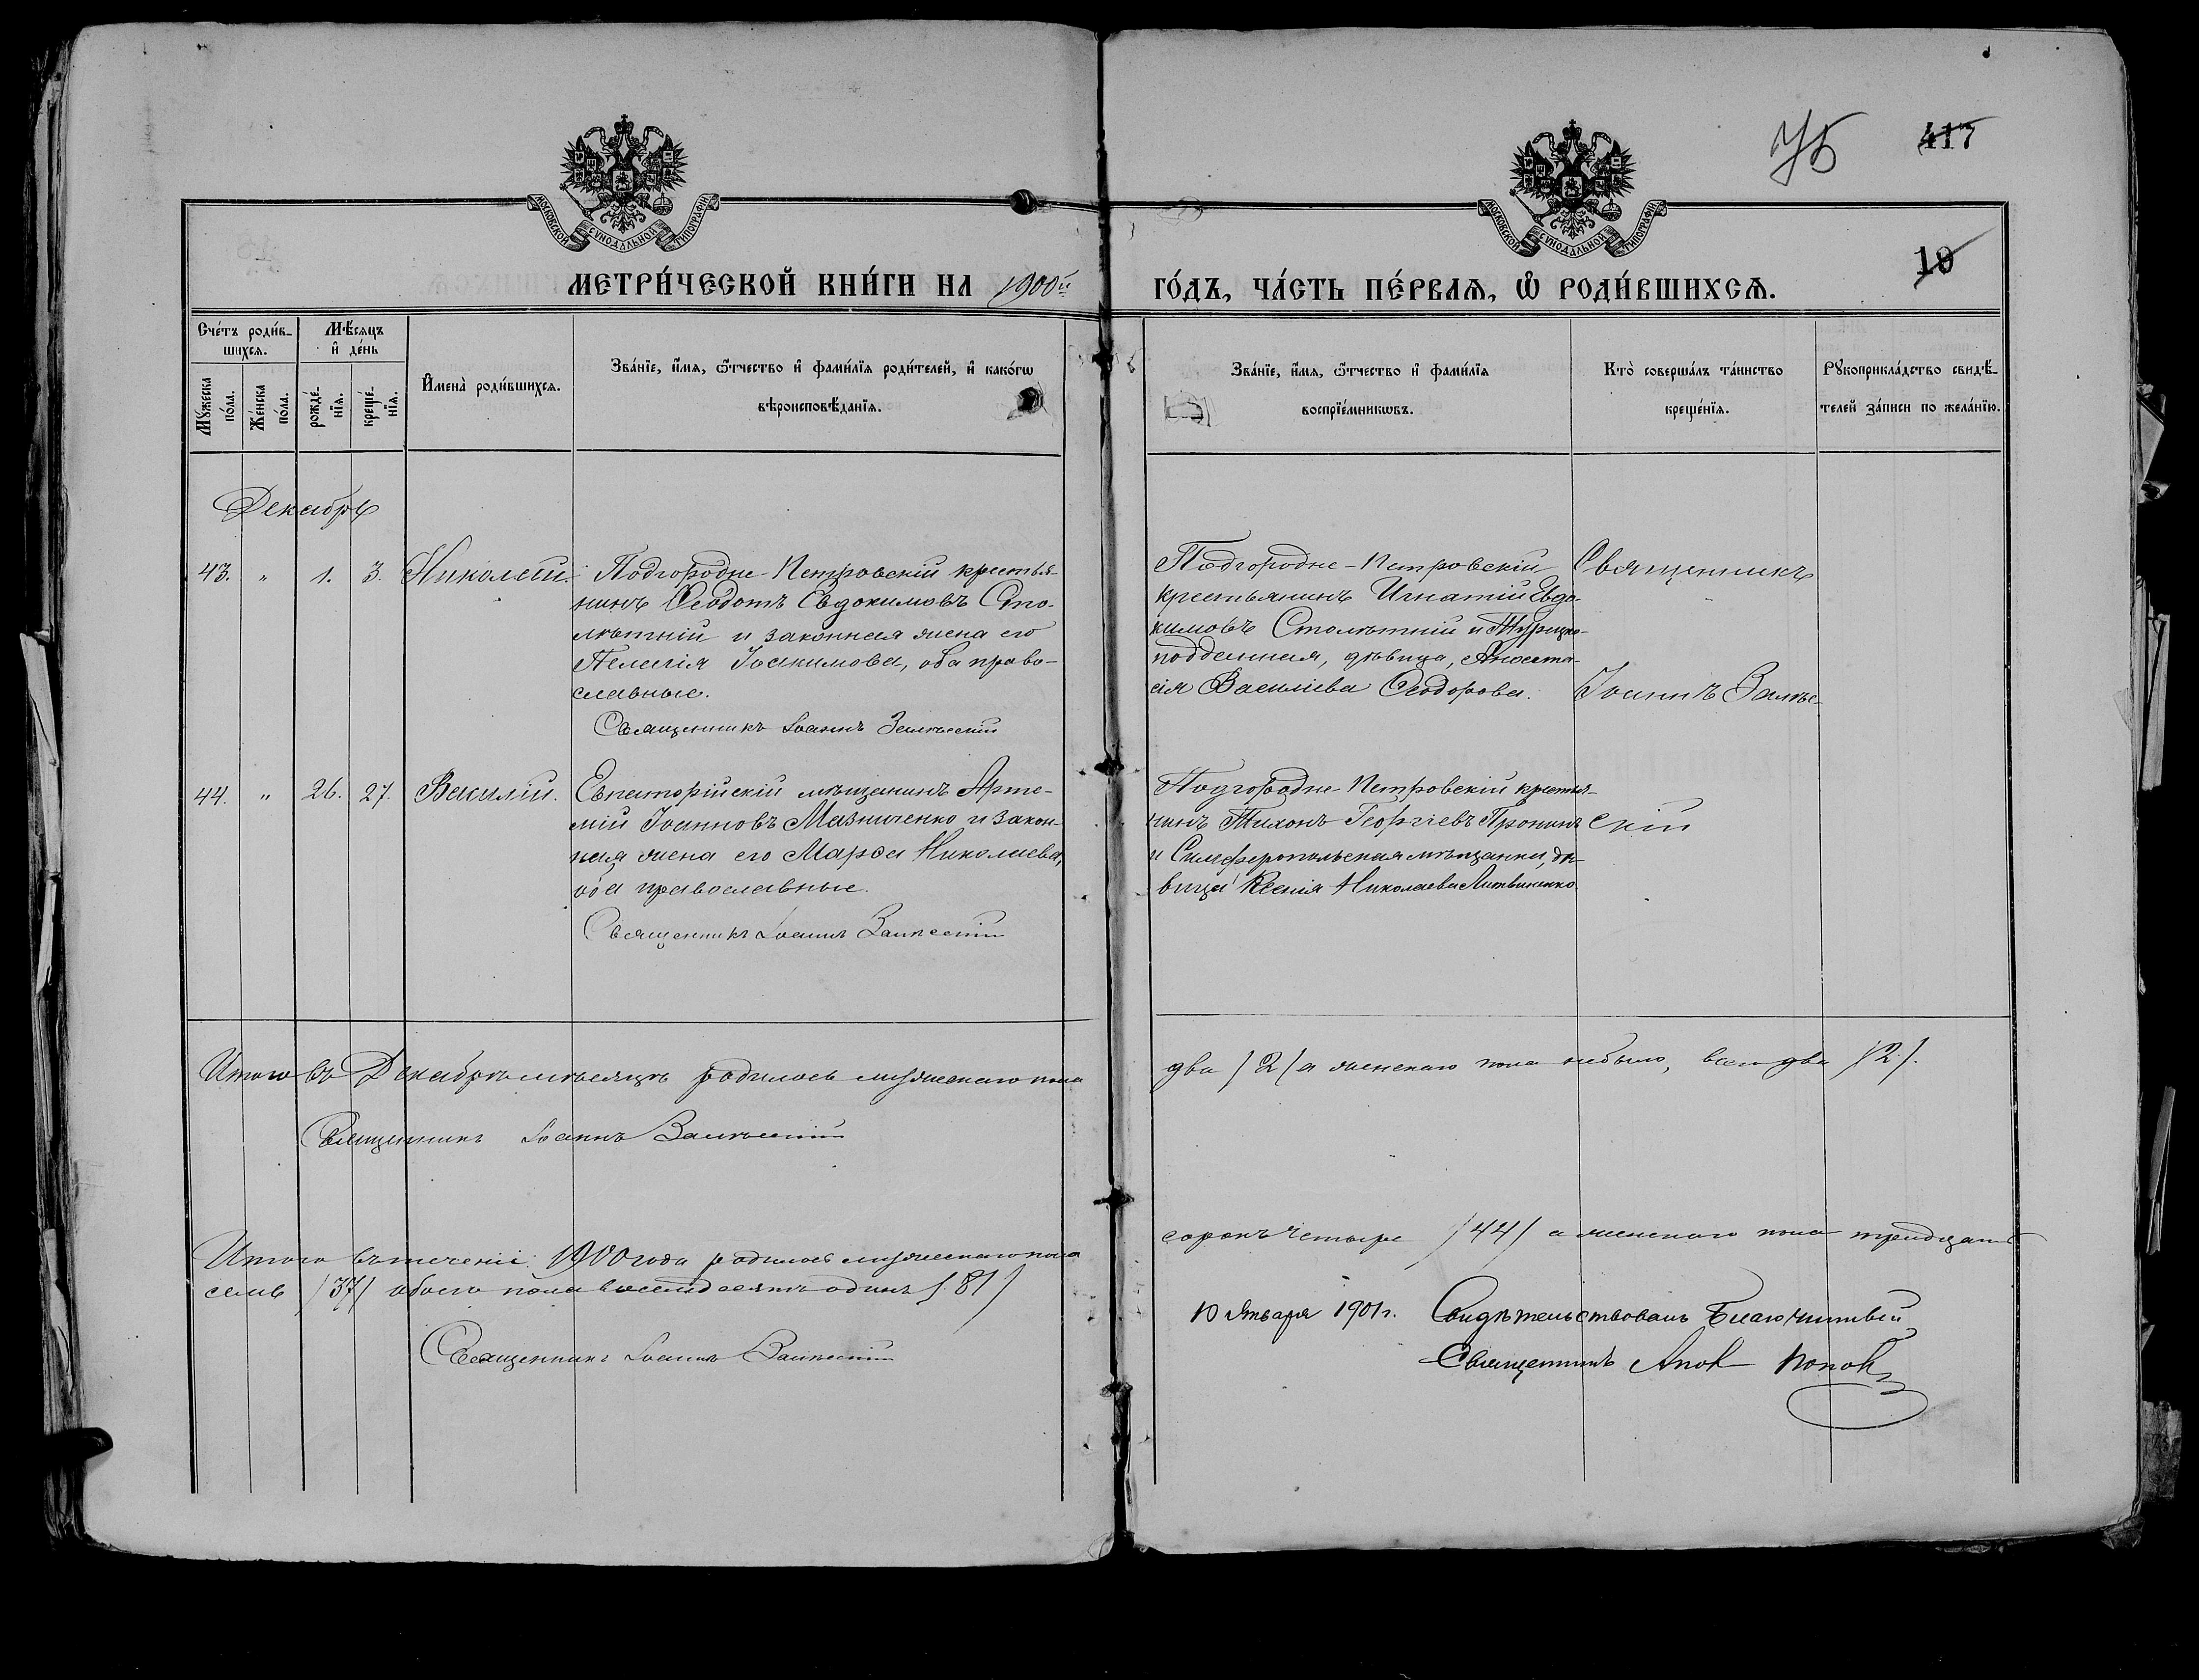 417
МОСКОВСКОЙ СѴНОДАЛЬНОЙ ТИПОГРАФІИ
МОСКОВСКОЙ СѴНОДАЛЬНОЙ ТИПОГРАФІИ
10
МЕТРИ́ЧЕСКОЙ КНИ́ГИ НА 1900й
ГО́ДЪ, ЧА́СТЬ ПЕ́РВАЯ, Ѡ РОДИ́ВШИХСЯ.
Сче́тъ роди́в-
шихся.
Мѣ́сяцъ
и де́нь
Мꙋ́жеска
по́ла.
Же́нска
по́ла.
рожде́-
нїя.
креще́-
нїя.
И҆мена̀ роди́вшихся.
Зва́нїе, и҆́мя, ѻ҆́тчество и҆ фами́лїя роди́телей, и҆ како́гѡ
вѣроисповѣ́данїя.
Зва́нїе, и҆́мя, ѻ҆́тчество и҆ фами́лїя
воспрїе́мникѡвъ.
Кто̀ соверша́лъ та́инство
креще́нїя.
Рꙋкоприкла́дство свидѣ́-
телей за́писи по жела́нїю.
Декабрь
43. " 1. 3. Николай.
Подгородне-Петровскій крестья-
нинъ Ѳеодотъ Евдокимовъ Сто-
лѣтній и законная жена его
Пелагія Іоакимова, оба право-
славные.
Священникъ Іоаннъ Залѣсскій
Подгородне-Петровскій
крестьянинъ Игнатій Евдо-
кимовъ Столѣтній и Турецко-
подданная, дѣвица, Анаста-
сія Васильева Ѳеодорова.
Священникъ
Іоаннъ Залѣс-
44. " 26. 27. Василій.
Евпаторійскій мѣщанинъ Арте-
мій Іоанновъ Мазниченко и закон-
ная жена его Марѳа Николаева,
оба православные.
Священникъ Іоаннъ Залѣсскій
Подгородне-Петровскій крестья-
нинъ Тихонъ Георгіевъ Пронинъ
и Симферопольская мѣщанка, дѣ-
вица Ксенія Николаева Литвиненко
скій
Итого въ Декабрѣ мѣсяцѣ родилось мужескаго пола
два /2/ а женскаго пола небыло, всего два /2/.
Священникъ Іоаннъ Залѣсскій
Итого въ теченіи 1900 года родилось мужескаго пола
сорокъ четыре /44/ а женскаго пола тридцать
семь /37/ обоего пола восемдесятъ одинъ /81/
Священникъ Іоаннъ Залѣсскій
10 Января 1901 г. Свидѣтельствовалъ Благочинный
Священникъ Попов